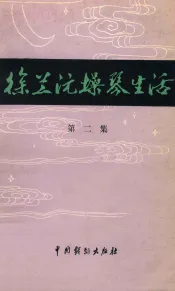 徐兰沅操琴生活
第二集
中国戏剧出版社